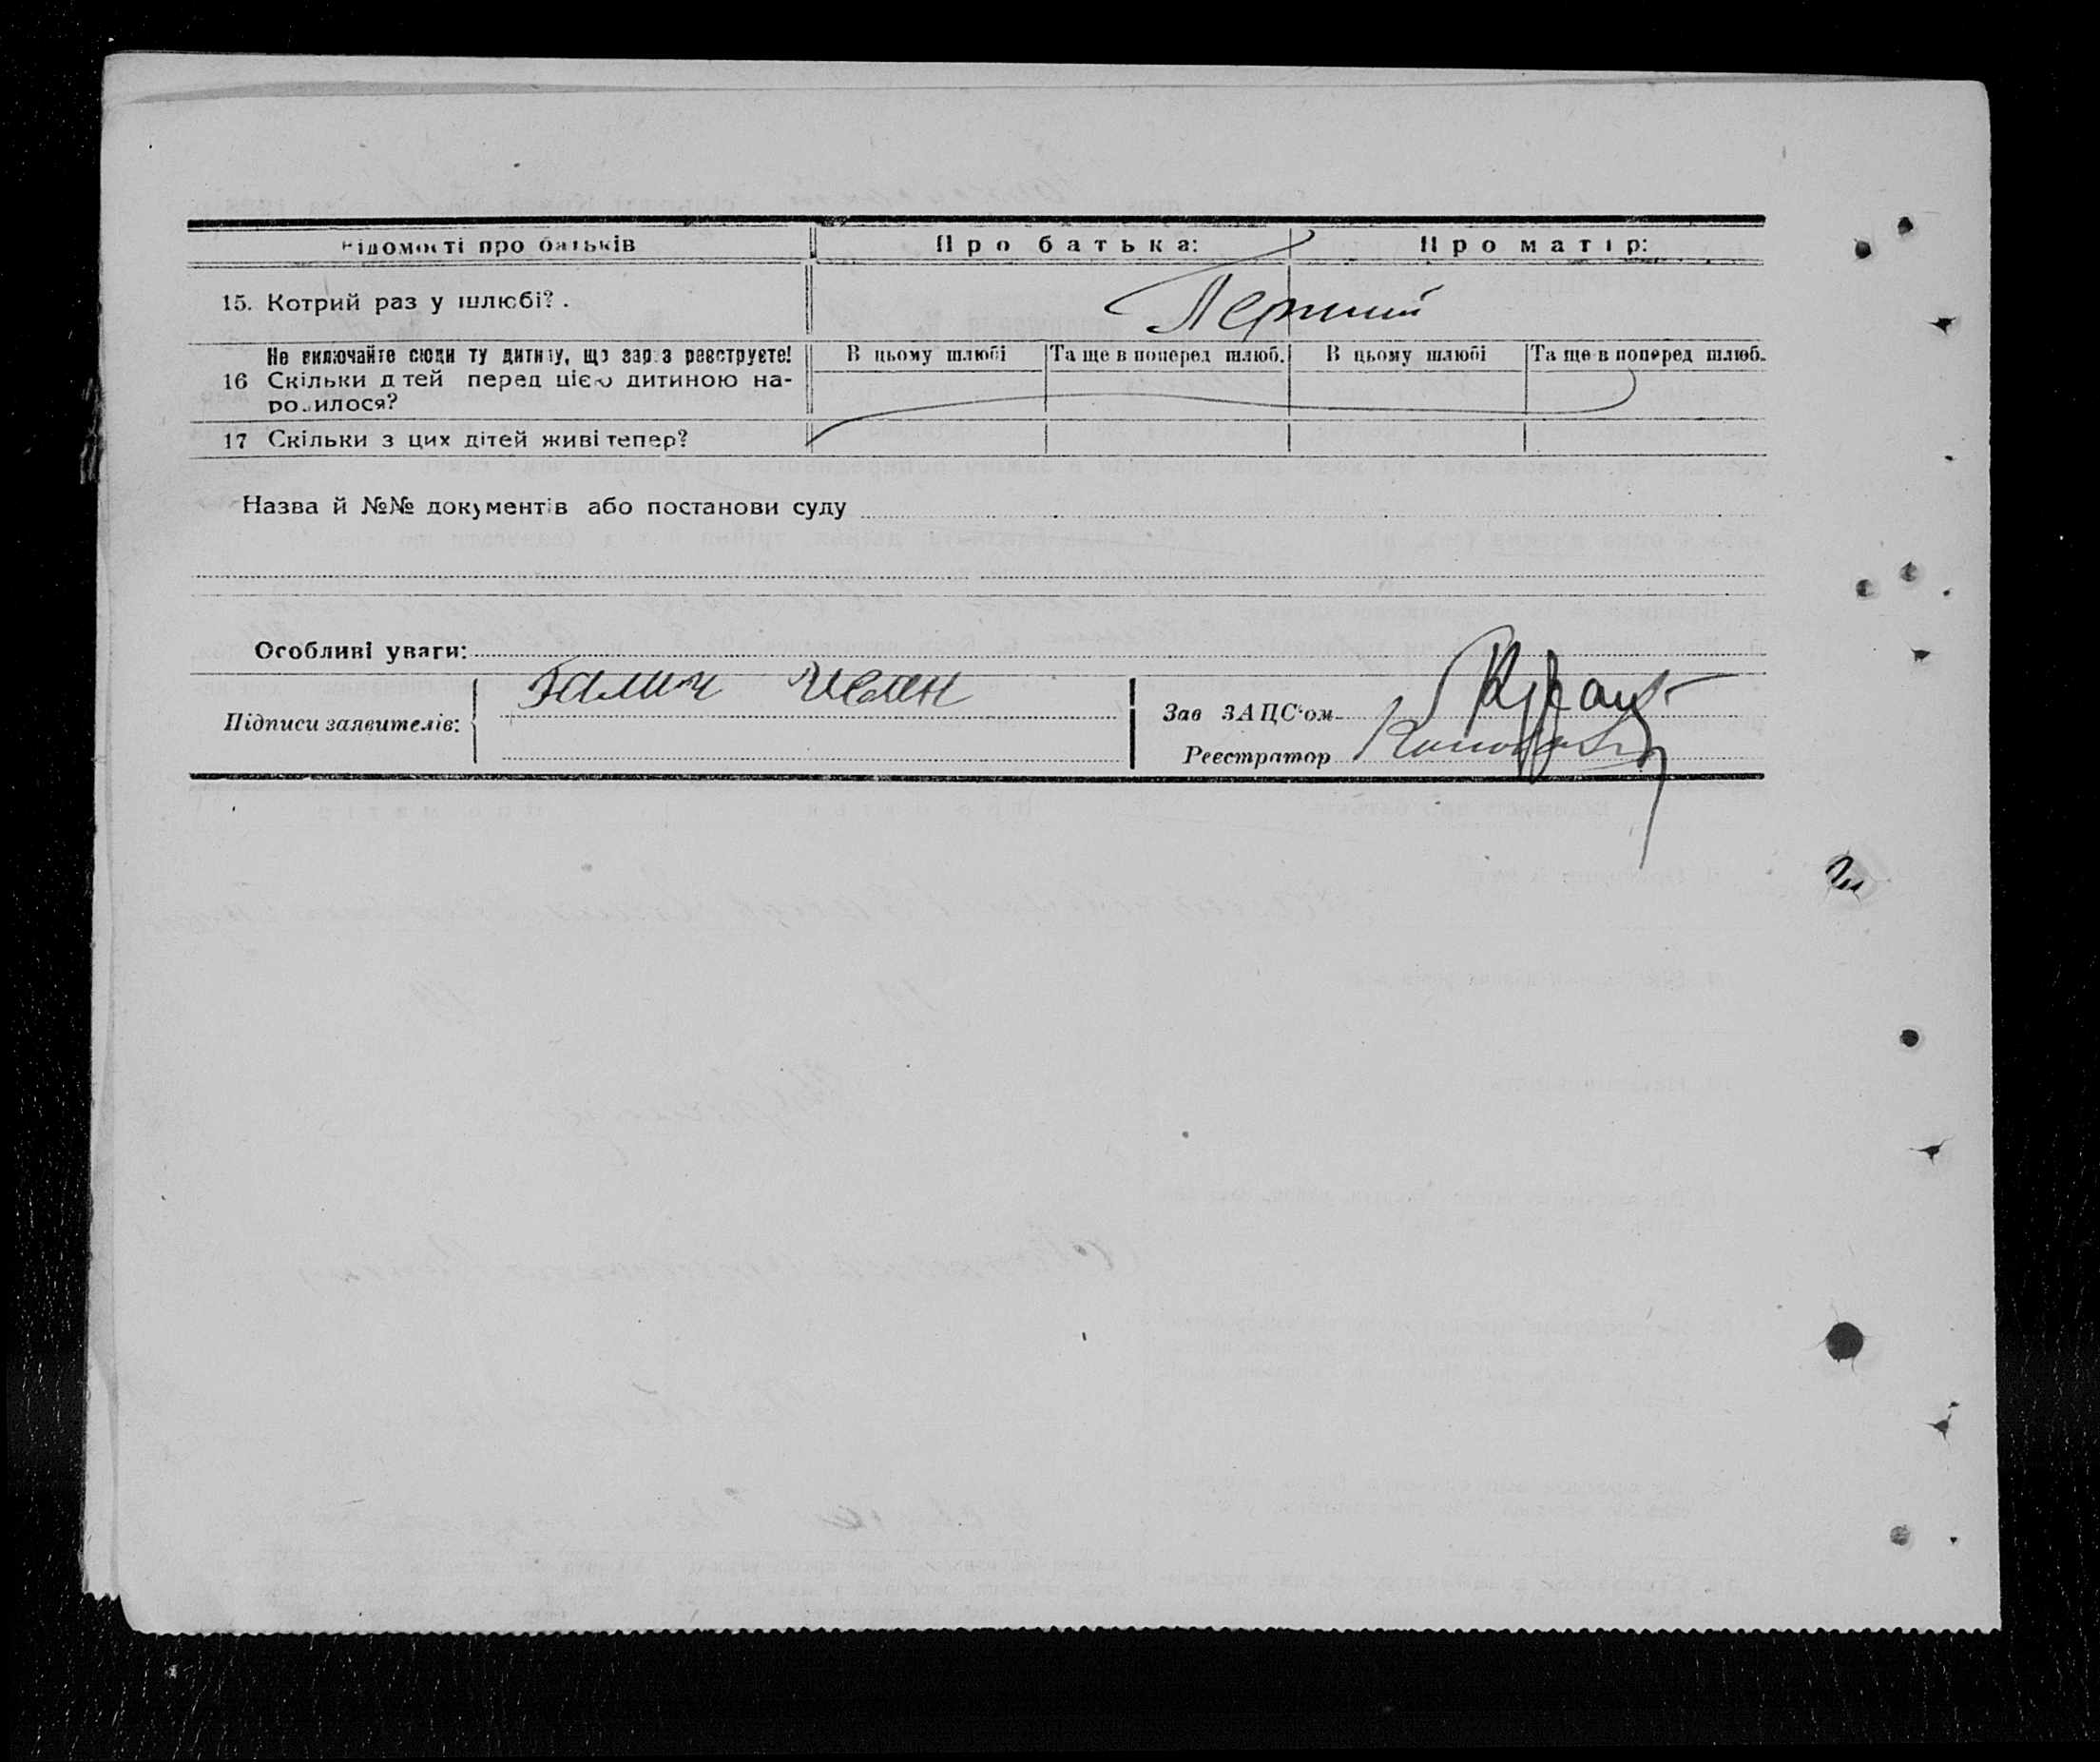 Відомості про батьків Про батька: Про матір:
15. Котрий раз у шлюбі? . Перший
Не включайте сюди ту дитину, що зараз реєструєте! В цьому шлюбі Та ще в поперед шлюб. В цьому шлюбі Та ще в поперед шлюб.
16 Скільки дітей перед цією дитиною на-
родилося?
17 Скільки з цих дітей живі тепер?
Назва й №№ документів або постанови суду
Особливі уваги:
Підписи заявителів: Галич Иван
Зав ЗАЦС'ом
Реєстратор